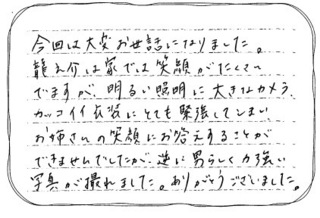 今回は大変お世話になりました。
龍之介は家では笑顔がたくさん
でますが、明るい照明に大きなカメラ、
カッコイイ衣装にとても緊張してしまい
お姉さんの笑顔にお答えすることが
できませんでしたが、逆に男らしく力強い
写真が撮れました。ありがとうございました。